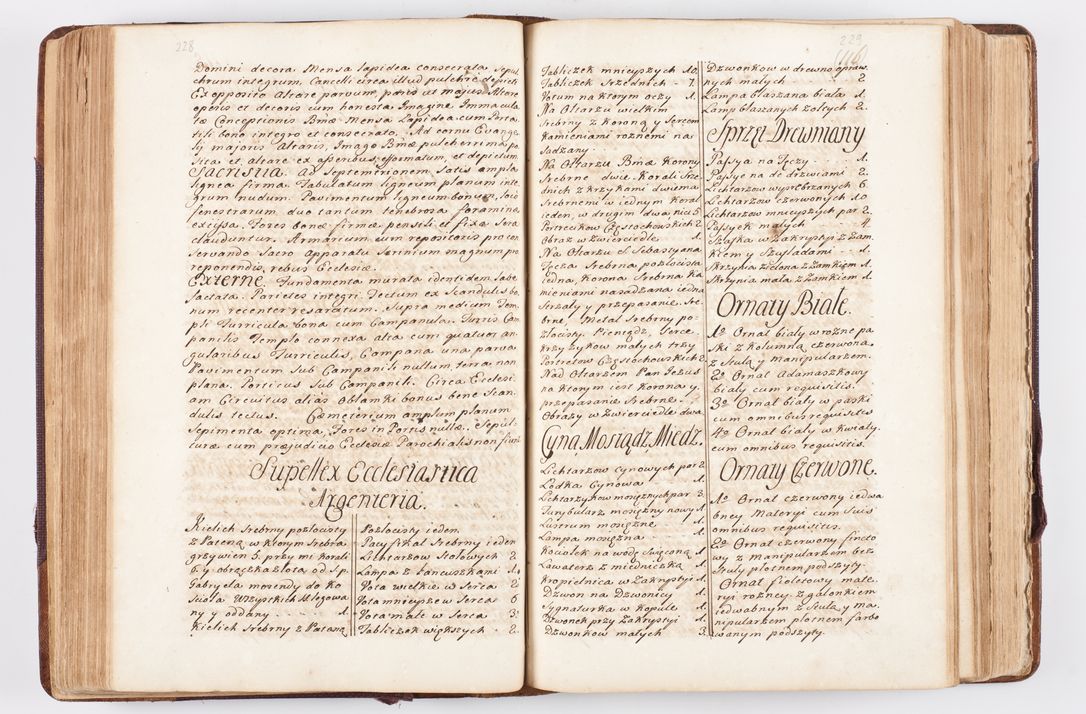 228
Domini decora Mensa lapidea consecrata sepul
chrum integrum. Cancelli circa illud pulchre depicti
Ex opposito Altare parvum paris ut majus Altare
operis et decoris cum honesta Imagine Immacula
tæ Conceptionis Bmæ Mensa Lapidea cum Porta
tili bono integro et consecrato. Ad cornu Evange
lij majoris Altaris, Imago Bmæ pulcherrima po
sita et altare ex asseribus efformatum, et depictum
Sacristia ad Septemtrionem Satis ampla
lignea firma. Tabulatum ligneum planum inte
grum nudum. Pavimentum ligneum bonum, Soie
fenestrarum duo tantum tenebrosa foramina
excisa. Fores bonæ firmæ pensili et fixa Sera
clauduntur. Armarium cum repositoris pro con
servando Sacro apparatu Scrinium magnum pro
reponendis rebus Ecclesiæ.
Externe. Fundamenta murata identidem labe
factata. Parietes integri. Tectum ex Scandulis bo
num recenter resaratum. Supra medium Tem
pli Turricula bona cum Campanula. Turris Cam
panilis Templo connexa alta cum quatuor an
gularibus Turriculis, Campana una parva
Pavimentum Sub Campanili nullum, terra non
plana. Porticus Sub Campanili. Circa Ecclesi
am Circuitus alias Oblanki bonus bene Scan
dulis tectus. Cæmeterium amplum planum
Sepimenta optima, Fores in Portis nullæ. Sepul
turæ cum præjudicio Ecclesiæ Parochialis non fiunt
Supellex Ecclesiastica
Argenteria.
Kielich Srebrny pozłocisty
z Pateną w ktorym Srebra
grzywien 5. przy mi Korali
6. y obrączka złota od S.p.
Gabryela morendy do Ko
scioła Wszystkich SS. legowa
ny y oddany . . . 1.
Kielich Srebrny z Pateną
Pozłocisty ieden
Pacyfikał Srebrny ieden
Lichtarzow Stołowych 2.
Lampa z Łancuszkami 1.
Vota wielkie w Serca 2.
Vota mnieysze w Serca 6
Vota małe w Serca 3.
Tabliczek większych . 2.
229
Tabliczek mnieyszych 10.
Tabliczek Srzednich . 7.
Votum na ktorym oczy 1.
Na Ołtarzu wielkim
Srebrny z Koroną y Sercem
Kamieniami roznemi na
sadzany.
Na Ołtarzu Bmæ Korony
Srebrne dwie. Korali Srze
dnich z krzykami dwiema
Srebrnemi w iednym Koral
ieden, w drugim dwa, nici 5.
Portretow Częstochowskich 2.
Obraz w Zwierciedle. 1.
Na Ołtarzu S. Sebastyana
Tęcza Srebrna pozłocista
iedna, Korona Srebrna ka
mieniami nasadzana iedna
Strzały y przepasanie Sre
brne, Metal Srebrny po
złocisty, Pieniądz, Serce
Krzyżykow małych trzy
Portretow Częstochowskich 2.
Nad Ołtarzem Pan Jezus
na ktorym iest Korona y
przepasanie Srebrne.
Obrazy w Zwierciedle dwa.
Cyna Mosiądz, Miedz.
Lichtarzow cynowych par 2.
Łodka Cynowa 1.
Lichtarzykow mosiężnych par 3.
Turybularz mosiężny nowy 1.
Lustrum mosiężne 1.
Lampa mosiężna 1.
Kociołek na wodę Swięconą 1.
Lawaterz z miedniczką 1.
Kropielnica w Zakrystyi 1.
Dzwon na Dzwonicy 1.
Sygnaturka w Kopule 1.
Dzwonek przy Zakrystyi 1.
Dzwonkow małych 3.
Dzwonkow w drewno opraw
nych małych . . 2.
Lampa blaszana biała 1.
Lamp blaszanych żołtych 2.
Sprzęt Drewniany
Passya na Tęczy . . . 1.
Passye na de drzwiami 2.
Lichtarzow wysrebrzanych 6.
Lichtarzow czerwonych 10
Lichtarzow mnieyszych par 2.
Passyek małych 4.
Szafka w Zakrystyi z Zam
kiem y Szufladami 1.
Skrzynia zielona z Zamkiem 1.
Skrzynia mała z Zamkiem 1.
Ornaty Białe.
1º Ornat biały w rozne pa
ski z Kolumną czerwoną
z Stułą y manipularzem.
2º Ornat Adamaszkowy
biały cum requisitis.
3º Ornat biały w paski
cum omnibus requisitis
4º Ornat biały w kwiaty
cum omnibus requisitis.
Ornaty Czerwone.
1º Ornat czerwony iedwa
bney Materyi cum suis
omnibus requisitis.
2º Ornat czerwony fincto
wy z manipularzem bez
Stuły płotnem podszyty.
Ornat fioletowy mate
ryi rozney z galonkiem
iedwabnym z Stułą y ma
nipularzem płotnem farbo
wanym podszyty.